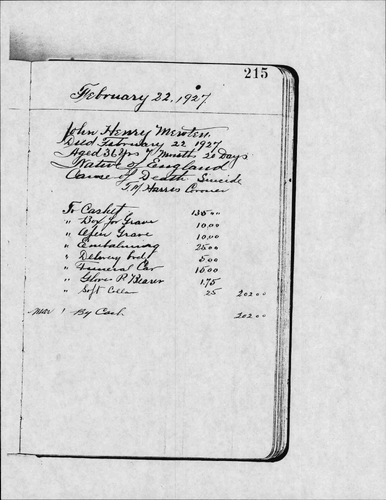 215
February 22, 1927
John Henry
Died February 22 1927
Aged 36 Yrs 7 Months 20 Days
Native of England
Cause of Death Suicide
Harris Coroner
To Casket 135 00
" Box for Grave 10.00
" Open Grave 10.00
" Embalming 25 00
" Delivery body 5.00
" Funeral Car 15.00
" Gloves P Bearer 1.75
" Soft Collar 25 202 00
Mar 1 By Cash 202 00